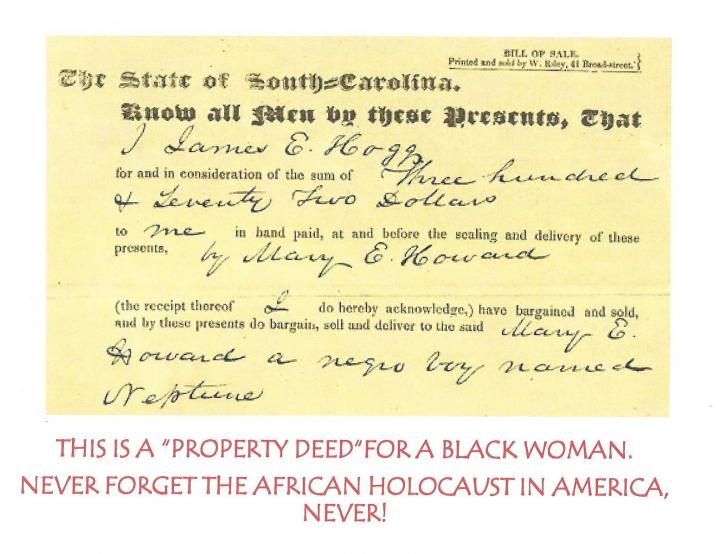 BILL OF SALE.
Printed and sold by W. Riley, 41 Broad-street.
The State of South-Carolina.
Know all Men by these Presents, That
I James E. Hogg
for and in consideration of the sum of Three hundred
& Seventy Two Dollars
to me in hand paid, at and before the sealing and delivery of these
presents, by Mary E. Howard
(the receipt thereof I do hereby acknowledge,) have bargained and sold,
and by these presents do bargain, sell and deliver to the said Mary E.
Howard a negro boy named
Neptune
THIS IS A “PROPERTY DEED“FOR A BLACK WOMAN.
NEVER FORGET THE AFRICAN HOLOCAUST IN AMERICA,
NEVER!